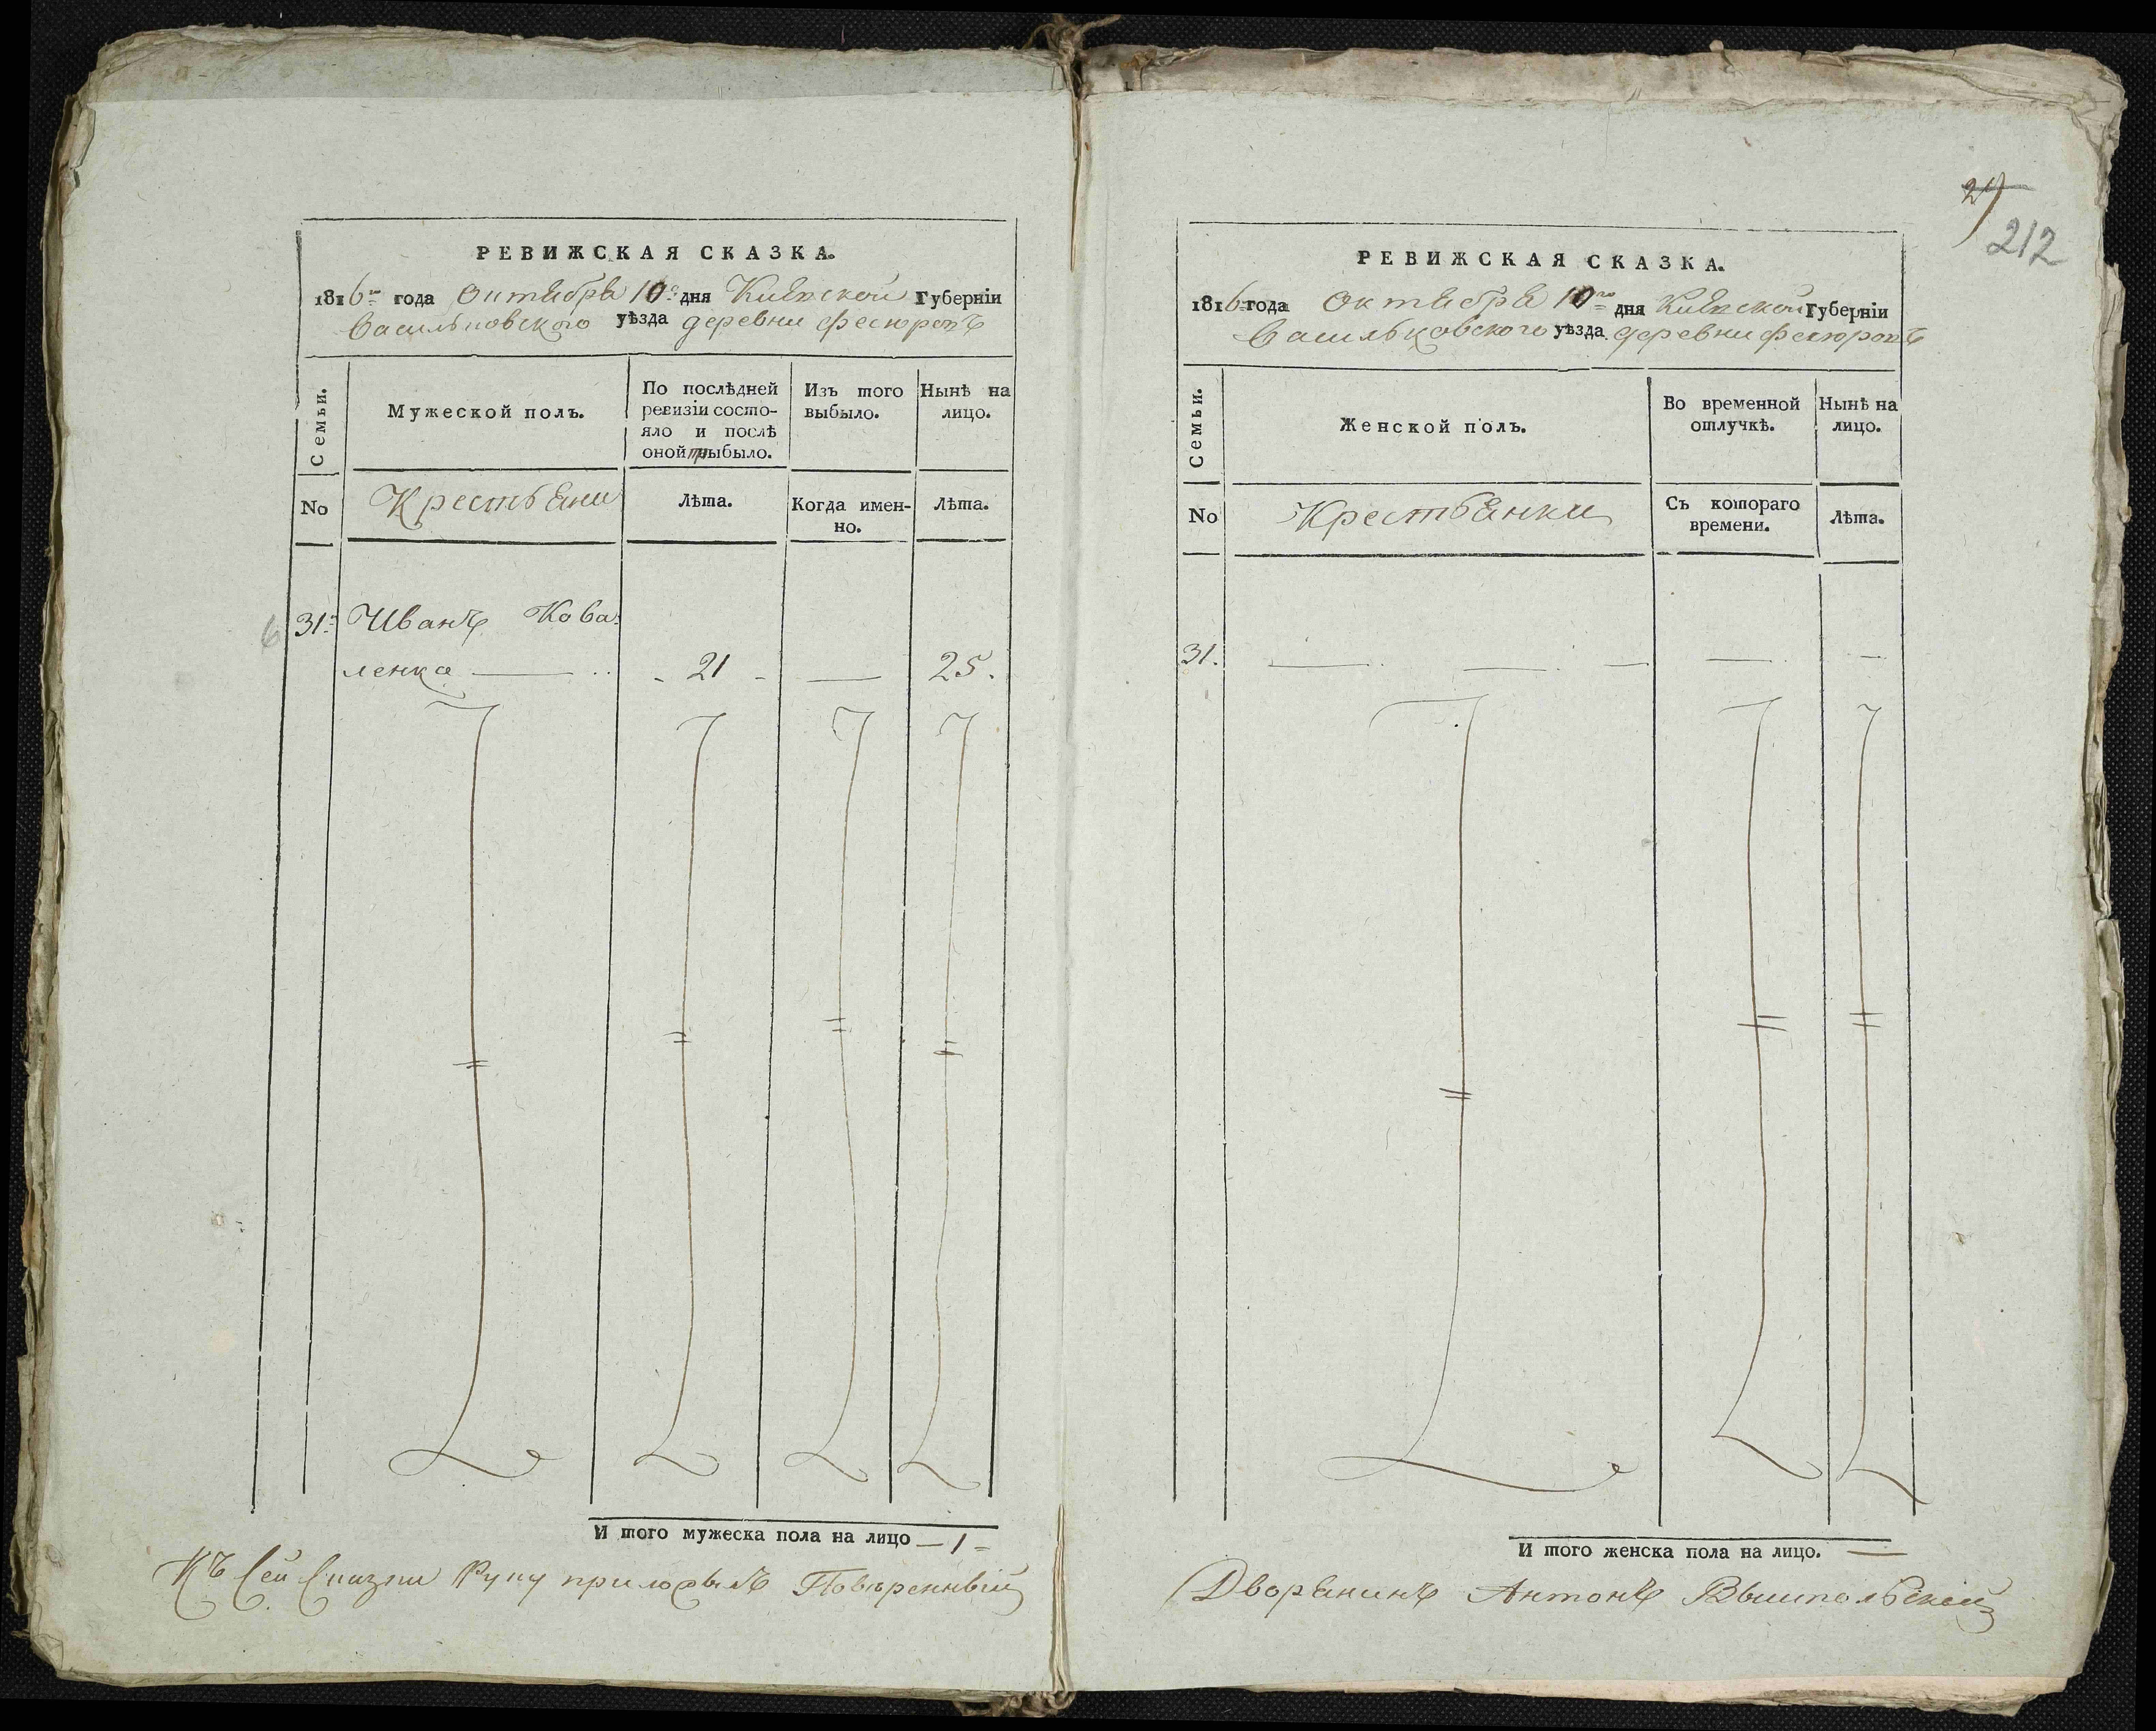 РЕВИЖСКАЯ СКАЗКА.
1816го года Октября 10го дня Киевской Губерніи
Васильковского уѣзда деревни Фесюрокъ
Семьи.
Мужеской полъ.
По послѣдней
ревизіи состо-
яло и послѣ
оной прибыло.
Изъ того
выбыло.
Нынѣ на
лицо.
No
Крестьяни
Лѣта.
Когда имен-
но.
Лѣта.
6
31. Иванъ Кова:
ленко 21 — 25.
И того мужеска пола на лицо — 1
Къ сей сказки руку приложылъ Повѣренный
27
212
РЕВИЖСКАЯ СКАЗКА.
1816 года Октября 10го дня Киевской Губерніи
Васильковского уѣзда деревни Фесюрокъ
Семьи.
Женской полъ.
Во временной
отлучкѣ.
Нынѣ на
лицо.
No
Крестьянки
Съ котораго
времени.
Лѣта.
31. — — — — —
И того женска пола на лицо. —
Дворянинъ Антонъ Вышпольскій